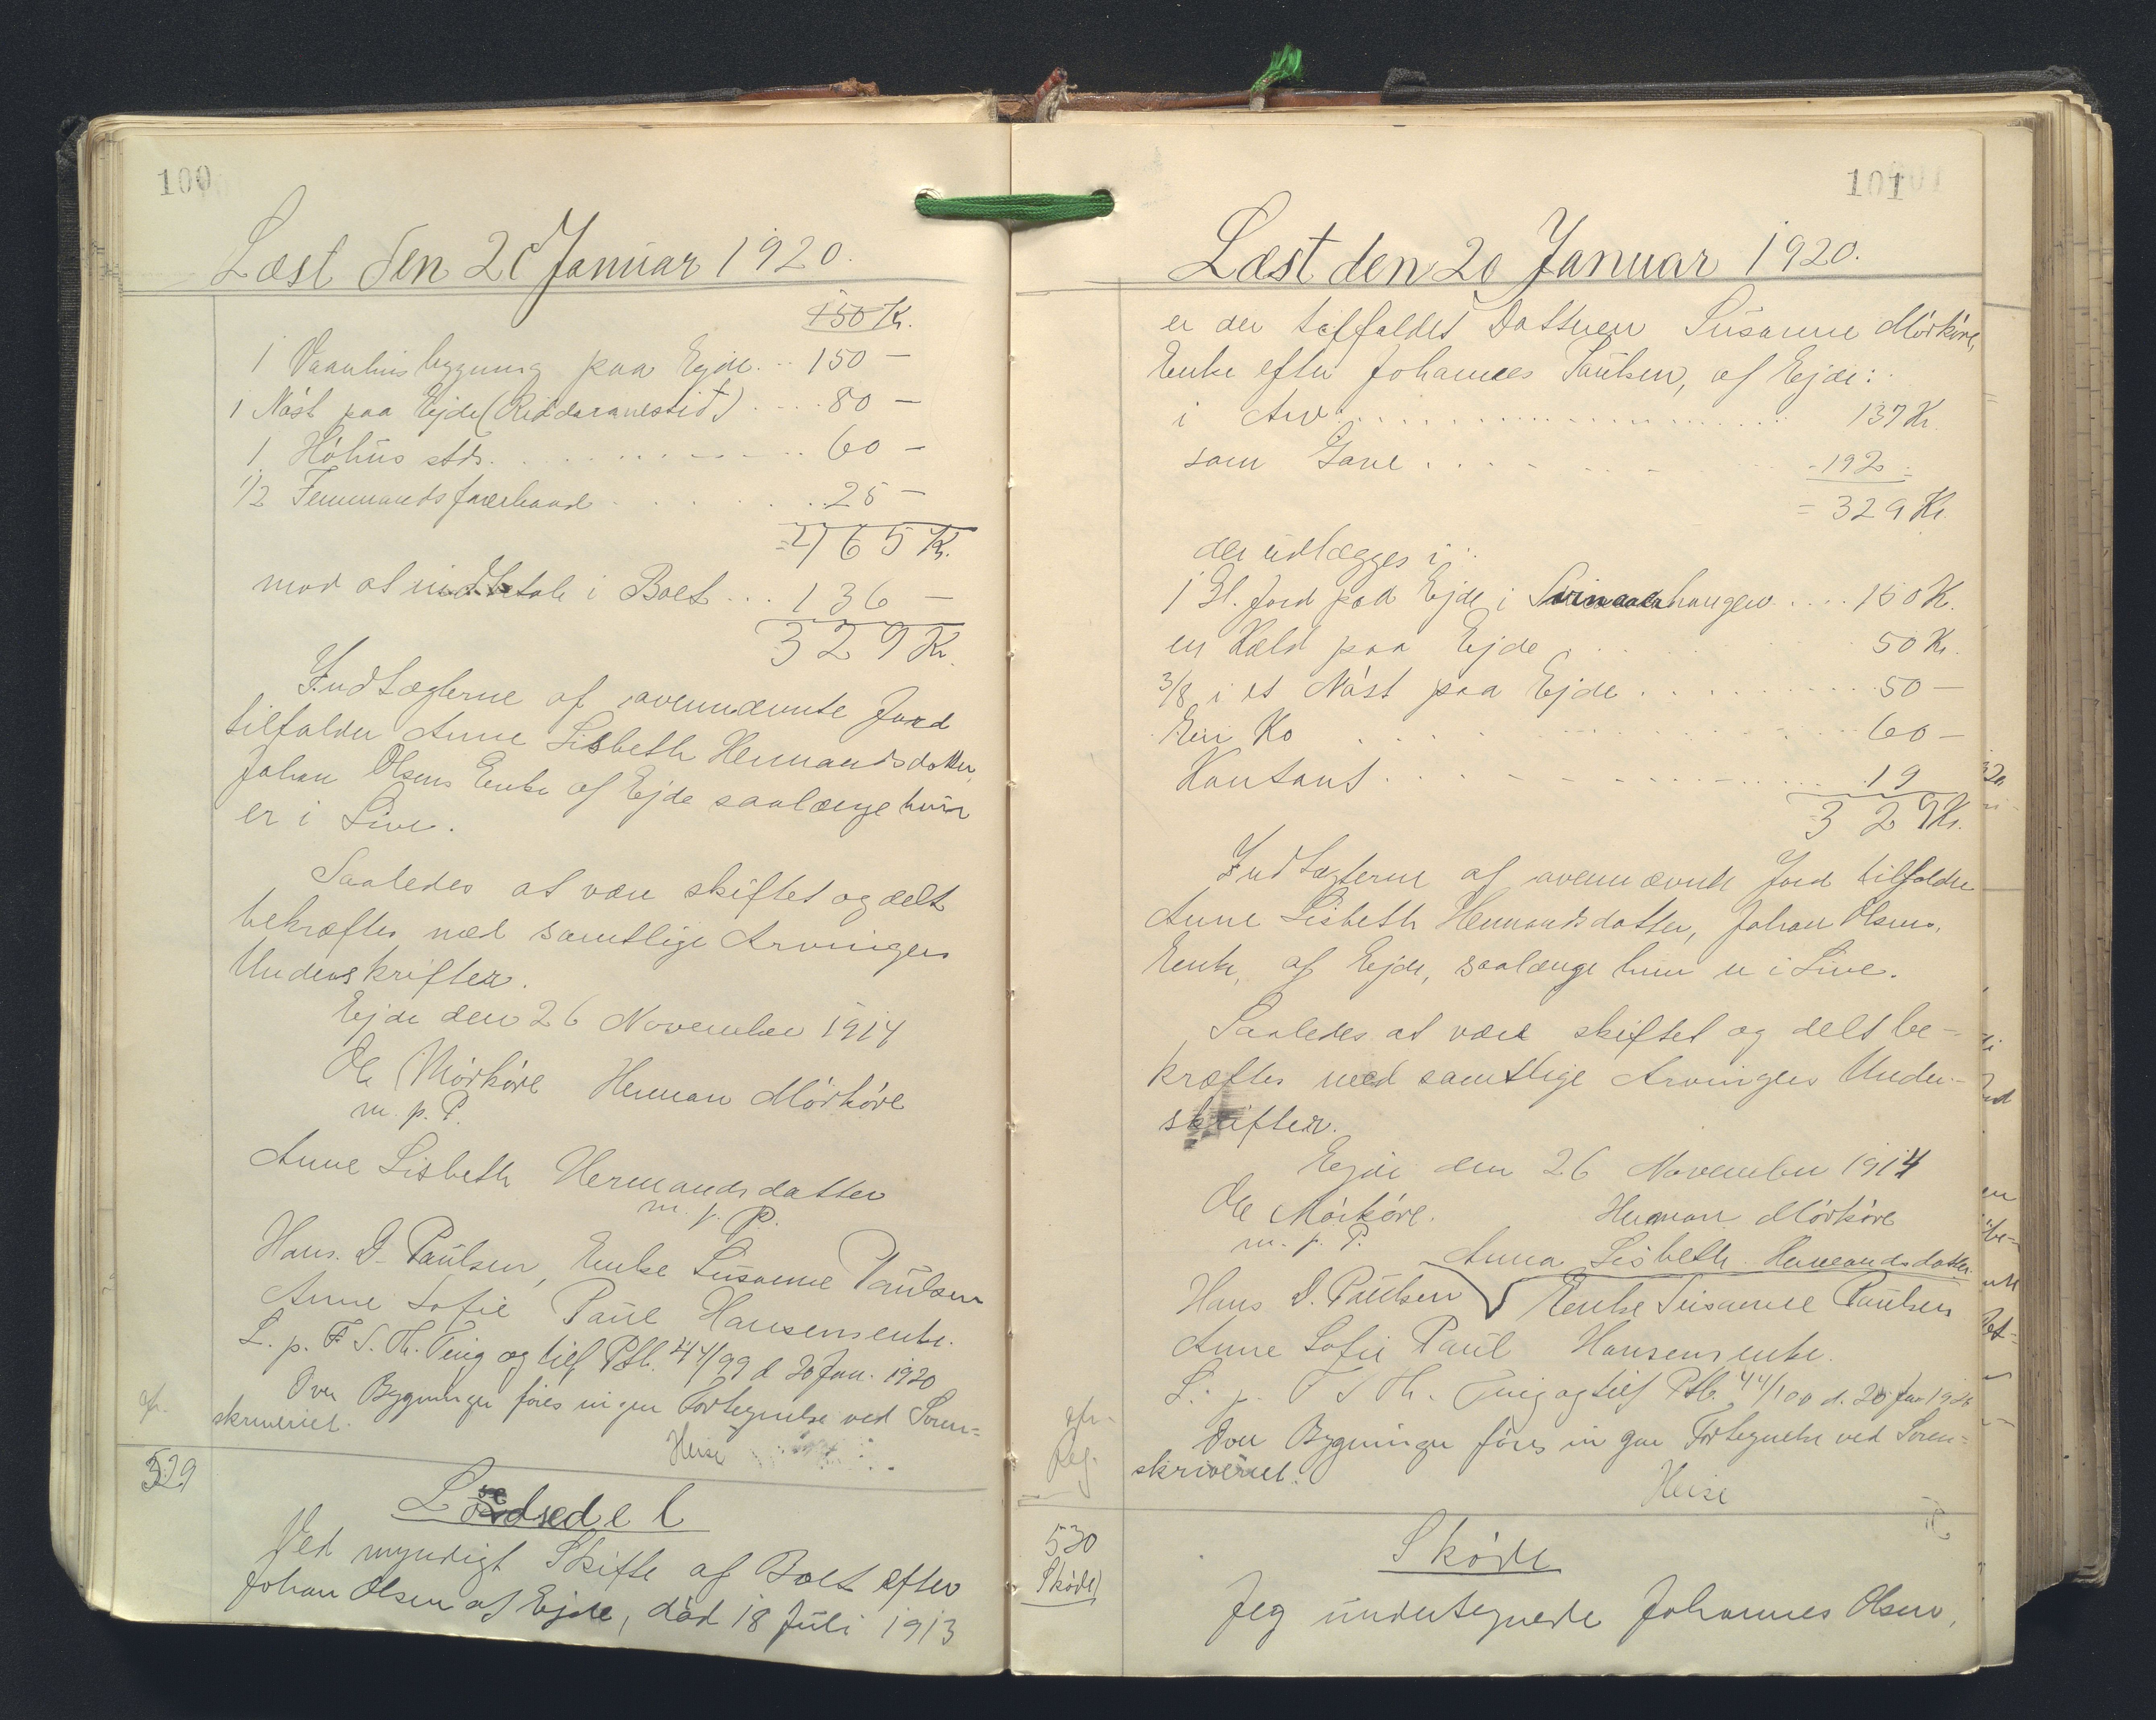 100
Læst den 20 Januar 1920.
150 Kr.
1 Vaanhusbygning paa Ejde .. 150 -
1 Nóst paa Ejde (Riddaranestid) .... 80 -
1 Hóhus sts. .......... 60 -
1/2 Femmandsfarerbaad ....... 25 -
= 465 Kr.
mod at indbetale i Boet ... 136 -
329 Kr.
Indtægterne af ovennævnte Jord
tilfalder Anne Lisbeth Hermandsdatter,
Johan Olsens Enke af Ejde saalænge hun
er i Live.
Saaledes at være skiftet og delt
bekræftes med samtlige Arvingers
Underskrifter.
Ejde den 26 November 1914
Ole Mórkóre Herman Mórkóre
m. p. P.
Anne Lisbeth Hermandsdatter
m. p. P.
Hans D. Paulsen, Enke Susanne Paulsen
Anne Sofie Paul Hansensenke.
L. p. F. S. Th. Ting og tilf. Ptb. 44/99 d. 20 Jan. 1920
Over Bygninger föres ingen Fortegnelse ved Soren=
skriveriet.
Heise
529
Lodsedel
Ved myndigt Skifte af Boet efter
Johan Olsen af Ejde, död 18 Juli 1913
101
Læst den 20 Januar 1920.
er der tilfaldet Datteren Susanne Mórkóre,
Enke efter Johannes Paulsen, af Ejde:
i Arv ............ 137 Kr.
som Gave ........ 192 -
= 329 Kr.
der udlægges i:
1 Gl. Jord paa Ejde i haugen .... 150 Kr.
en Kæld paa Ejde ...... 50 Kr.
3/8 i et Nóst paa Ejde ......... 50 -
Een Ko .......... 60 -
Kontant .......... 19
329 Kr.
Indtægterne af ovennævnte Jord tilfalder
Anne Lisbeth Hermandsdatter, Johan Olsens,
Enke, af Ejde, saalænge hun er i Live.
Saaledes at være skiftet og delt be-
kræftes med samtlige Arvingers Under-
skrifter.
Ejde den 26 November 1914
Ole Mórkóre. Herman Mórkóre
m. p. P.
Anna Lisbeth Hermandsdatter
Hans D. Paulsen Enke Susanne Paulsen
Anne Sofie Paul Hansensenke.
L. p. F. S. Th. Ting og tilf. Ptb. 44/100 d. 20 Jan 1920
Over Bygninger föres ingen Fortegnelse ved Soren=
skriveriet.
Heise
Reg.
530
Sköde
Sköde
Jeg undertegnede Johannes Olsen,